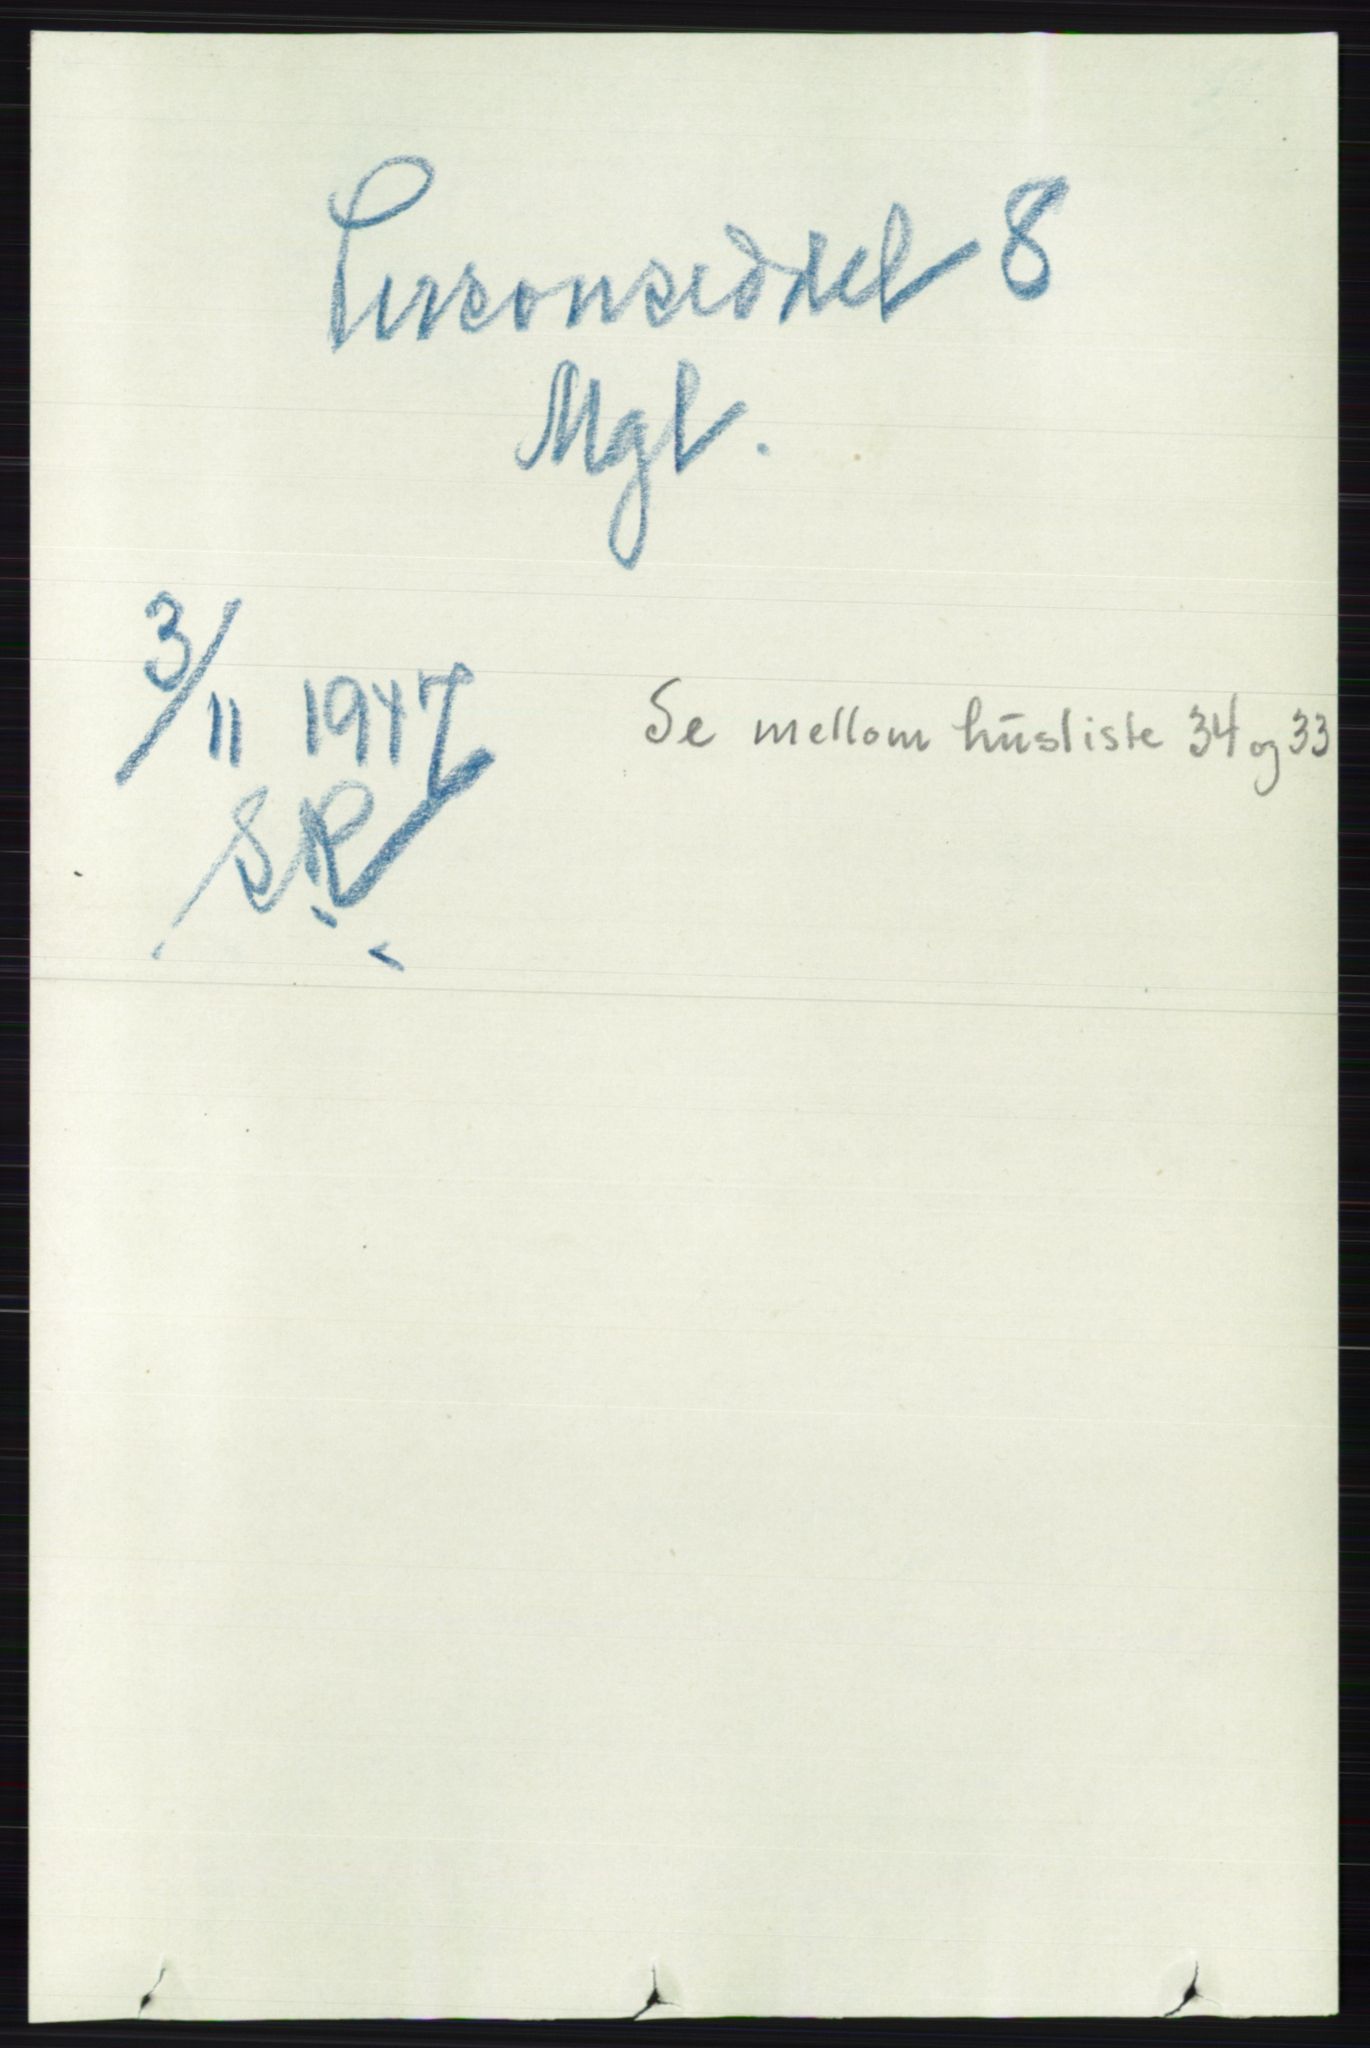 Personseddel 8
Mgl.
3/11 1947
SR
Se mellom husliste 34 og 33